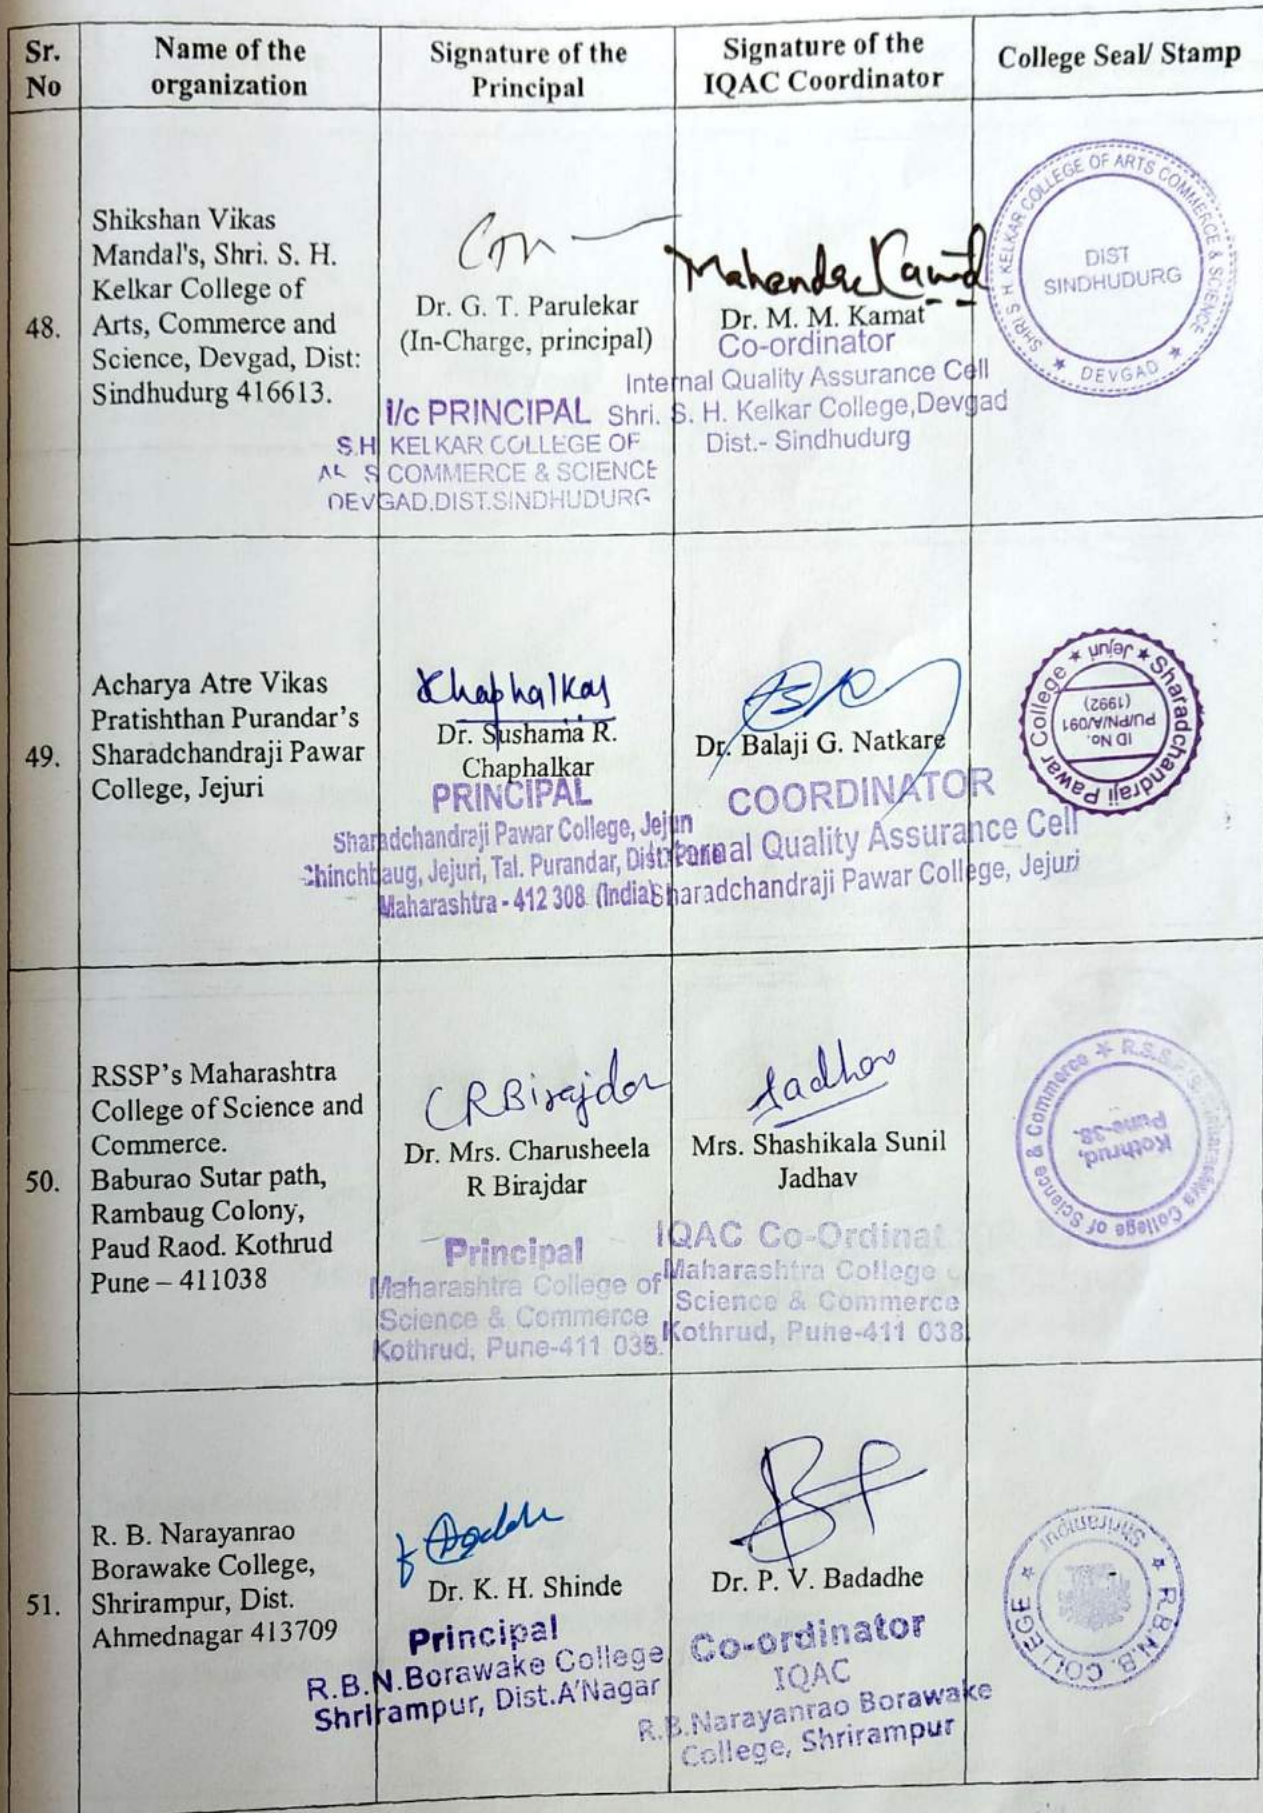 Sr. No
Name of the organization
Signature of the Principal
Signature of the IQAC Coordinator
College Seal/ Stamp
48.
Shikshan Vikas
Mandal's, Shri. S. H.
Kelkar College of
Arts, Commerce and
Science, Devgad, Dist:
Sindhudurg 416613.
Dr. G. T. Parulekar
(In-Charge, principal)
I/c PRINCIPAL
S.H KELKAR COLLEGE OF
S COMMERCE & SCIENCE
DEVGAD.DIST.SINDHUDURG
Mahendra Kamat
Dr. M. M. Kamat
Co-ordinator
Internal Quality Assurance Cell
Shri. S. H. Kelkar College,Devgad
Dist.- Sindhudurg
SHRI S H KELKAR COLLEGE OF ARTS COMMERCE & SCIENCE
★ DEVGAD ★
DIST
SINDHUDURG
49.
Acharya Atre Vikas
Pratishthan Purandar's
Sharadchandraji Pawar
College, Jejuri
Chaphalkar
Dr. Sushama R.
Chaphalkar
PRINCIPAL
Sharadchandraji Pawar College, Jejuri
Chinchbaug, Jejuri, Tal. Purandar, Dist. Pune
Maharashtra - 412 308. (India)
Dr. Balaji G. Natkare
COORDINATOR
Internal Quality Assurance Cell
Sharadchandraji Pawar College, Jejuri
★ Sharadchandraji Pawar College ★ Jejuri
ID No.
PU/PN/A/091
(1992)
50.
RSSP's Maharashtra
College of Science and
Commerce.
Baburao Sutar path,
Rambaug Colony,
Paud Raod. Kothrud
Pune – 411038
CRBirajdar
Dr. Mrs. Charusheela
R Birajdar
Principal
Maharashtra College of
Science & Commerce
Kothrud, Pune-411 038.
Jadhav
Mrs. Shashikala Sunil
Jadhav
IQAC Co-Ordinat
Maharashtra College
Science & Commerce
Kothrud, Pune-411 038.
R.S.S.P'S. Maharashtra College of Science & Commerce
Kothrud,
Pune-38.
51.
R. B. Narayanrao
Borawake College,
Shrirampur, Dist.
Ahmednagar 413709
Dr. K. H. Shinde
Principal
R.B.N.Borawake College
Shrirampur, Dist.A'Nagar
Dr. P. V. Badadhe
Co-ordinator
IQAC
R.B.Narayanrao Borawake
College, Shrirampur
★ R.B.N.B. COLLEGE ★
Shrirampur